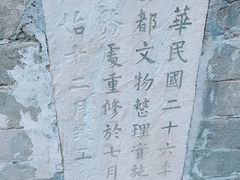 華民國二十六年
都文物整理實施
處重修於七月
十二月竣工